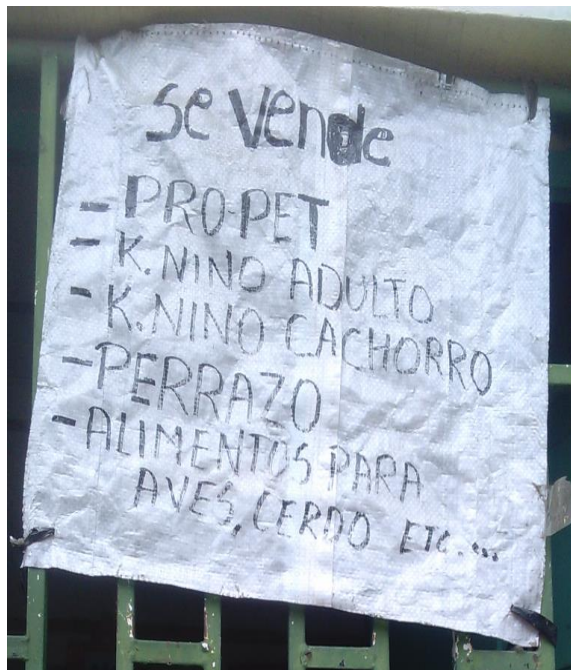 Se Vende
- PRO-PET
- K.NINO ADULTO
- K.NINO CACHORRO
- PERRAZO
- ALIMENTOS PARA
AVES, CERDO ETC....